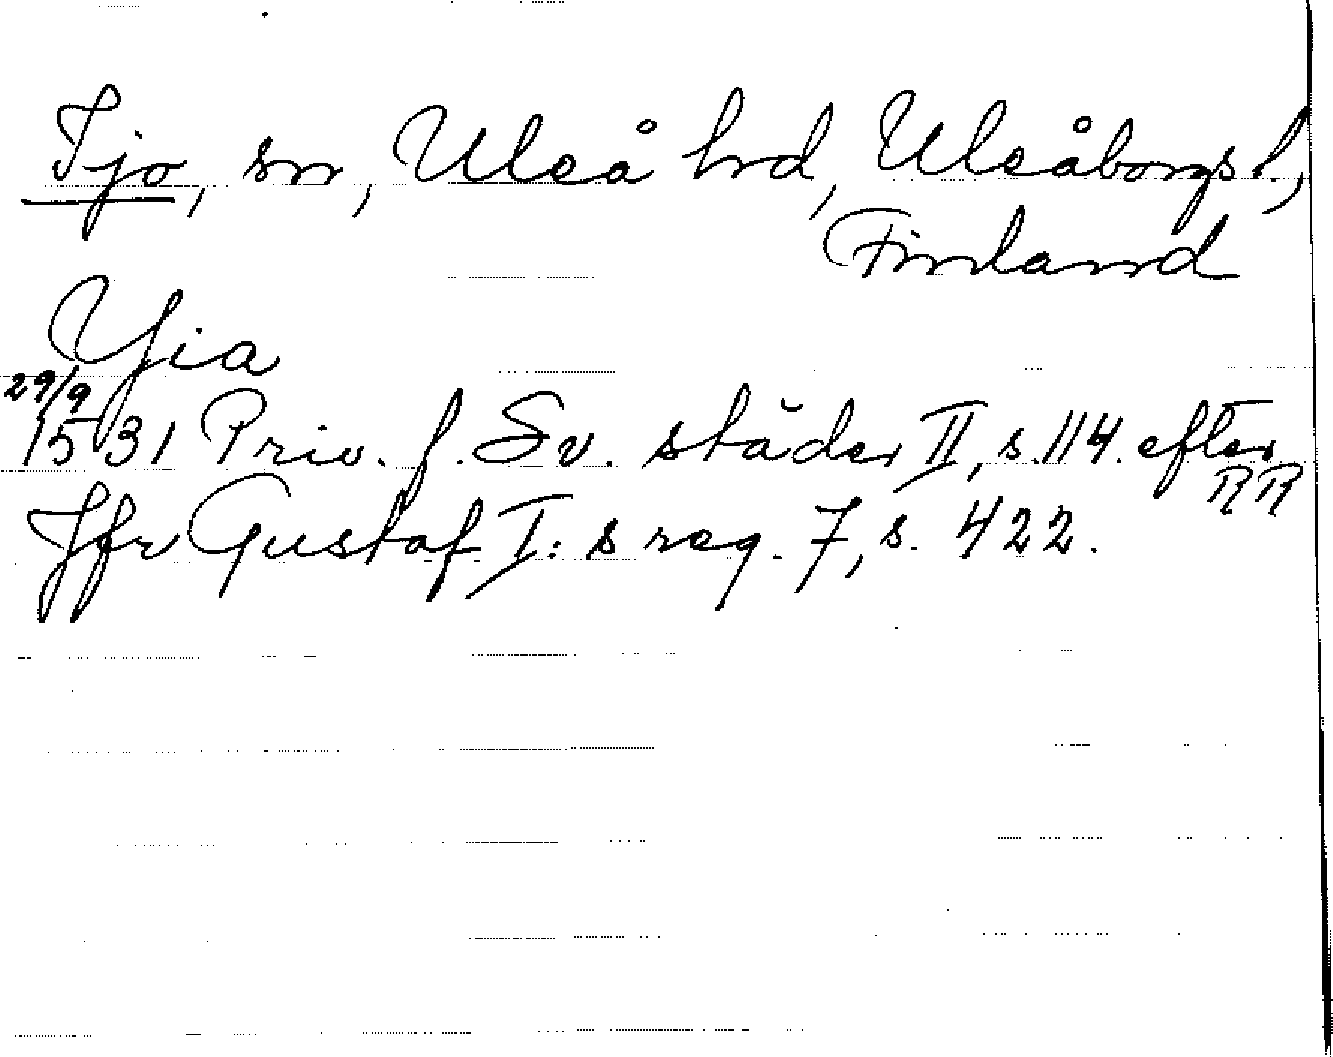 Ijo, sn, Uleå hrd, Uleåborgs l.,
Finland
Yia
29/9
1531 Priv. f. Sv. städer II, s. 114. efter
RR
Jfr Gustaf I:s reg. 7, s. 422.